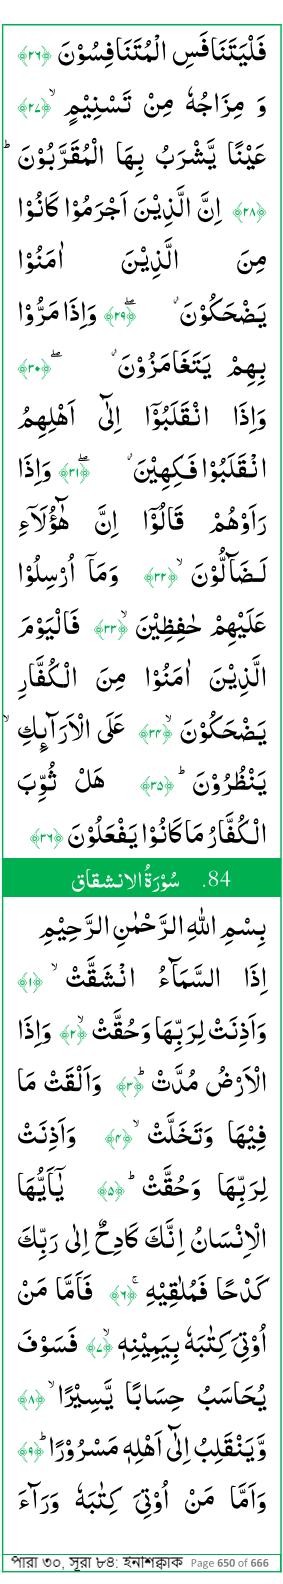 فَلْيَتَنَافَسِ الْمُتَنَافِسُوْنَ ﴿۲۶﴾
وَ مِزَاجُهٗ مِنْ تَسْنِيْمٍ ۙ﴿۲۷﴾
عَيْنًا يَّشْرَبُ بِهَا الْمُقَرَّبُوْنَ ؕ
﴿۲۸﴾ اِنَّ الَّذِيْنَ اَجْرَمُوْا كَانُوْا
مِنَ الَّذِيْنَ اٰمَنُوْا
يَضْحَكُوْنَ ۗ ۖ﴿۲۹﴾ وَاِذَا مَرُّوْا
بِهِمْ يَتَغَامَزُوْنَ ۗ ۖ﴿۳۰﴾
وَاِذَا انْقَلَبُوْۤا اِلٰۤى اَهْلِهِمُ
انْقَلَبُوْا فَكِهِيْنَ ۗ ۖ﴿۳۱﴾ وَاِذَا
رَاَوْهُمْ قَالُوْۤا اِنَّ هٰۤؤُلَآءِ
لَضَآلُّوْنَ ۙ﴿۳۲﴾ وَمَاۤ اُرْسِلُوْا
عَلَيْهِمْ حٰفِظِيْنَ ۙ﴿۳۳﴾ فَالْيَوْمَ
الَّذِيْنَ اٰمَنُوْا مِنَ الْكُفَّارِ
يَضْحَكُوْنَ ۙ﴿۳۴﴾ عَلَى الْاَرَآئِكِ ۙ
يَنْظُرُوْنَ ؕ﴿۳۵﴾ هَلْ ثُوِّبَ
الْكُفَّارُ مَا كَانُوْا يَفْعَلُوْنَ ﴿۳۶﴾
84. سُوْرَةُ الانشقاق
بِسْمِ اللهِ الرَّحْمٰنِ الرَّحِيْمِ
اِذَا السَّمَآءُ انْشَقَّتْ ۙ﴿۱﴾
وَاَذِنَتْ لِرَبِّهَا وَحُقَّتْ ۙ﴿۲﴾ وَاِذَا
الْاَرْضُ مُدَّتْ ؕ﴿۳﴾ وَاَلْقَتْ مَا
فِيْهَا وَتَخَلَّتْ ۙ﴿۴﴾ وَاَذِنَتْ
لِرَبِّهَا وَحُقَّتْ ؕ﴿۵﴾ يٰۤاَيُّهَا
الْاِنْسَانُ اِنَّكَ كَادِحٌ اِلٰى رَبِّكَ
كَدْحًا فَمُلٰقِيْهِ ۚ﴿۶﴾ فَاَمَّا مَنْ
اُوْتِيَ كِتٰبَهٗ بِيَمِيْنِهٖ ۙ﴿۷﴾ فَسَوْفَ
يُحَاسَبُ حِسَابًا يَّسِيْرًا ۙ﴿۸﴾
وَّيَنْقَلِبُ اِلٰۤى اَهْلِهٖ مَسْرُوْرًا ؕ﴿۹﴾
وَاَمَّا مَنْ اُوْتِيَ كِتٰبَهٗ وَرَآءَ
পারা ৩০, সূরা ৮৪: ইনশিক্বাক Page 650 of 666